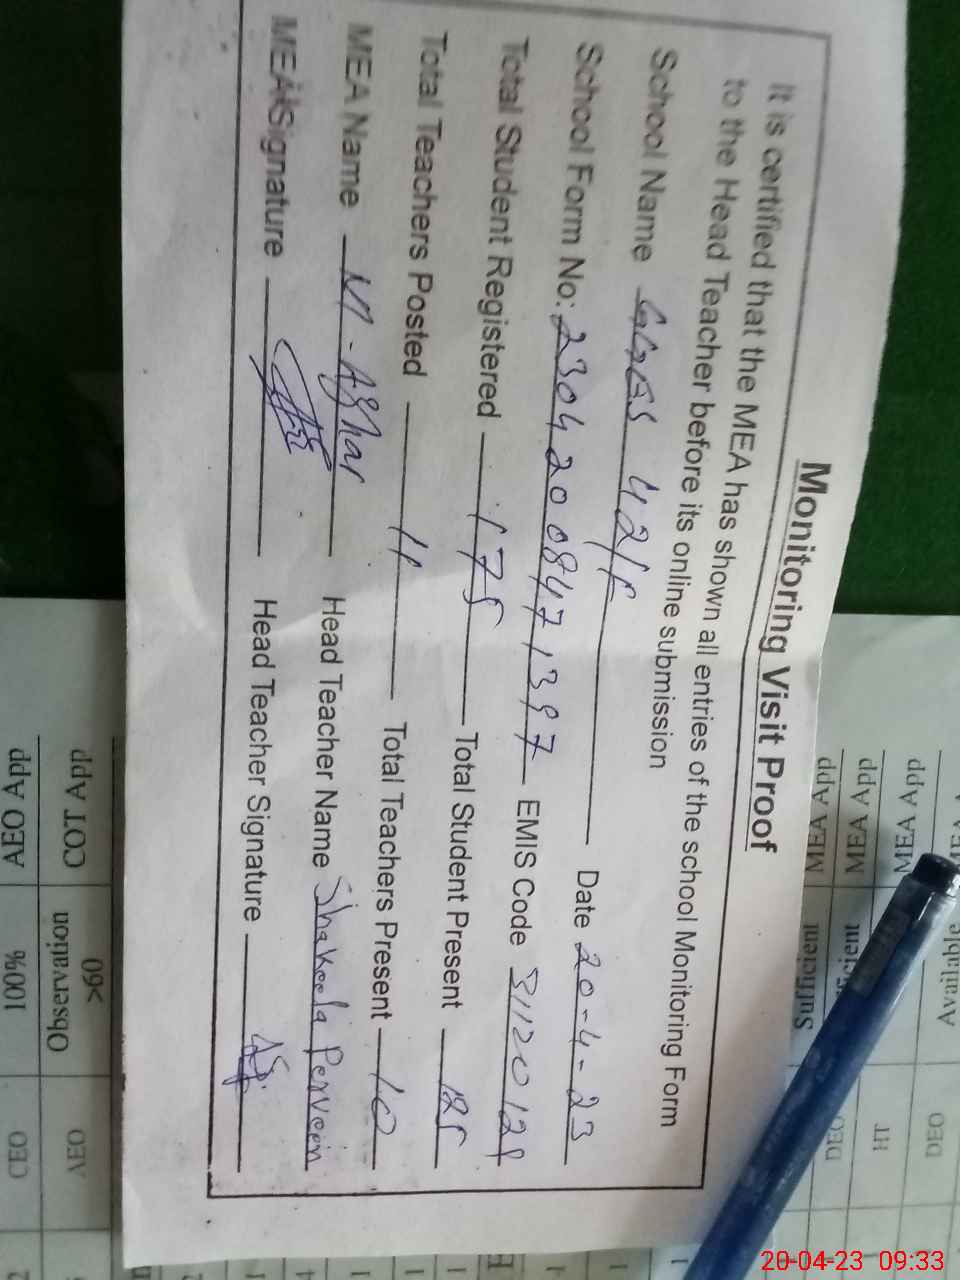 Monitoring Visit Proof
It is certified that the MEA has shown all entries of the school Monitoring Form
to the Head Teacher before its online submission
School Name GGES 42/F Date 20-4-23
School Form No: 2304200847 1397 EMIS Code 31120128
Total Student Registered 175 Total Student Present 125
Total Teachers Posted 11 Total Teachers Present 10
MEA Name M-Azhar Head Teacher Name Shakeela Perveen
MEA Signature Head Teacher Signature
MEA App
MEA App
MEA App Sufficient
Available
DEO
HT
DEO
COT App Observation <60 CEO
AEO App 100% CEO
20-04-23 09:33